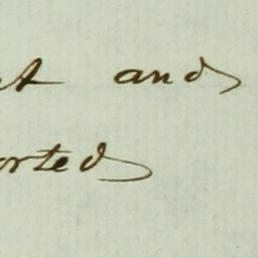 and
orted